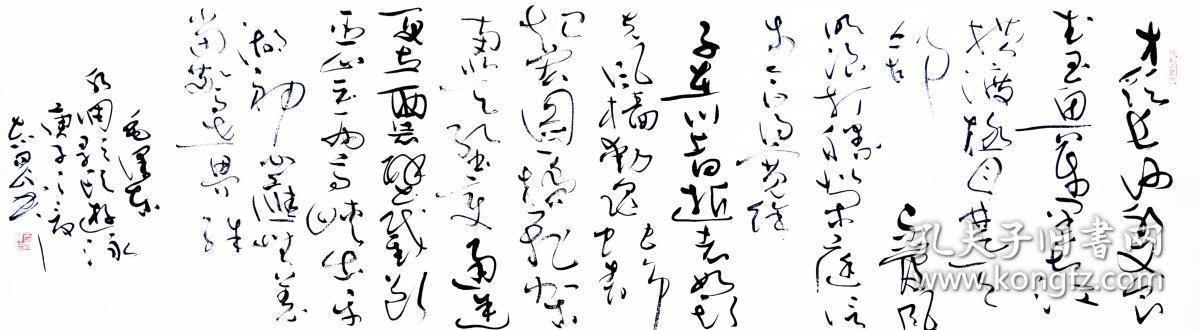 才饮长沙水又食
武昌鱼万里长江
横渡极目楚天
舒不管风
吹浪打胜似闲庭信
步今日得宽馀
子在川上曰逝者如斯
夫风樯动龟蛇静
起宏图一桥飞架
南北天堑变通途
更立西江石壁截断
巫山云雨高峡出平
湖神女应无恙
当惊世界殊
毛泽东
水调歌头游泳
庚子之
书
孔夫子旧书网
www.kongfz.com